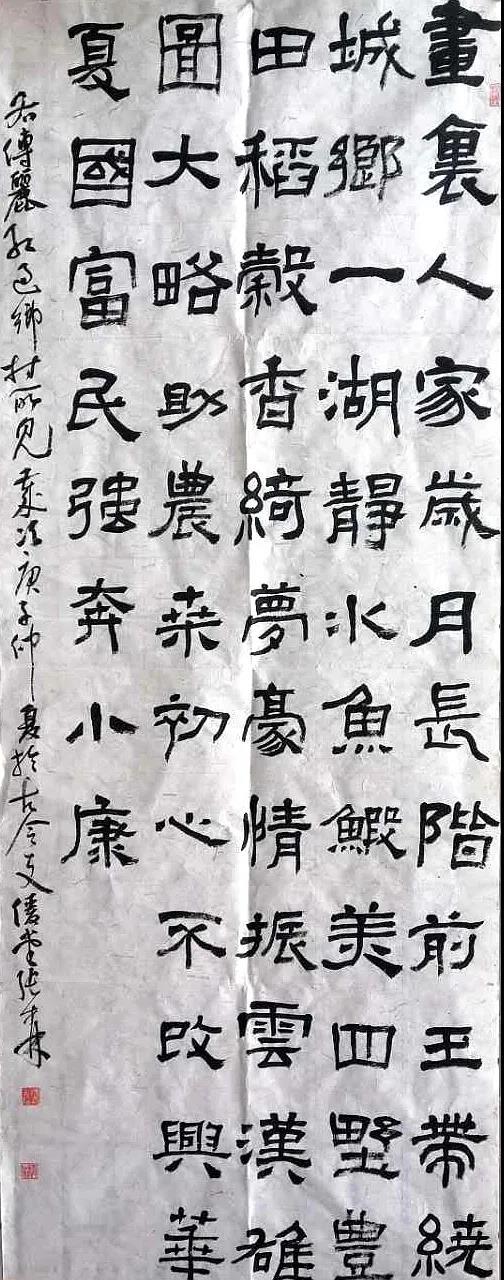 畫裏人家歲月長階前玉帶繞
城鄉一湖靜水魚鰕美四野豊
田稻穀香綺夢豪情振雲漢雄
圖大略助農桑初心不改興華
夏國富民强奔小康
傳麗紅過鄉村所見 庚子仲夏於古今支